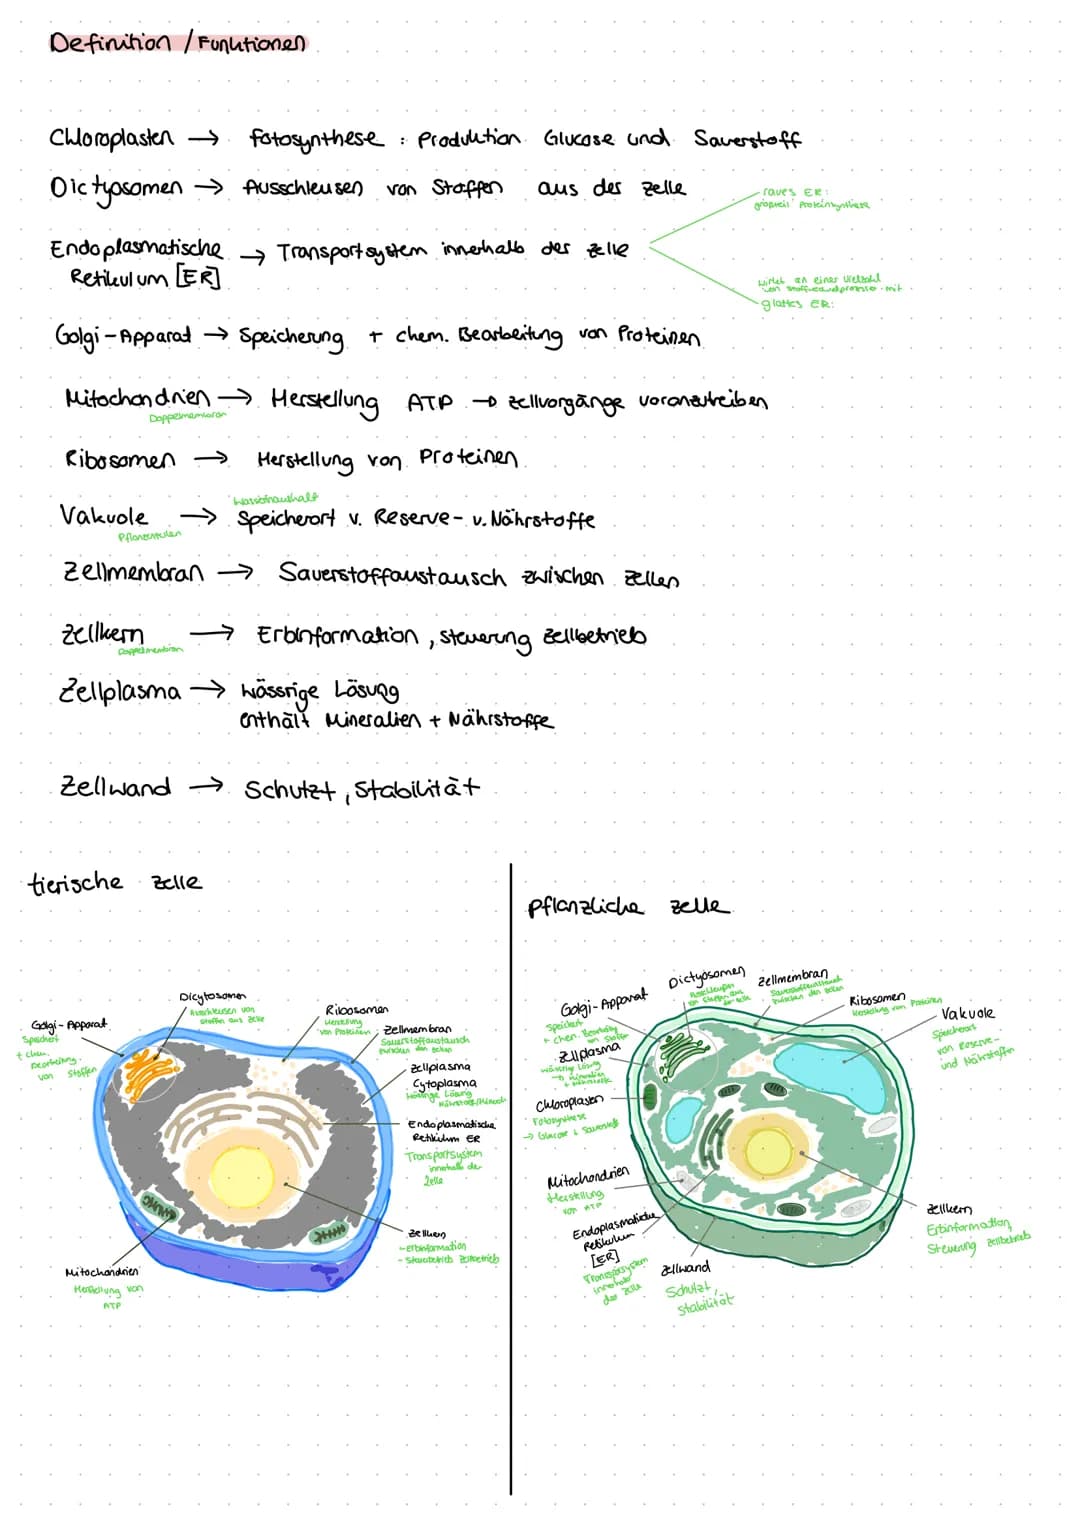 Definition / Funktionen
Chloroplasten → Fotosynthese : Produktion Glucose und Sauerstoff
Dictyosomen → Ausschleusen von Stoffen aus der Zelle
raues ER:
großteil Proteinsynthese
Endoplasmatische → Transportsystem innerhalb der Zelle
Retikulum [ER]
wirkt an einer Vielzahl
von Stoffwechselprozesse mit
glattes ER:
Golgi-Apparat → Speicherung + chem. Bearbeitung von Proteinen
Mitochondrien → Herstellung ATP → Zellvorgänge voranzutreiben
Doppelmembran
Ribosomen → Herstellung von Proteinen
Wasserhaushalt
Vakuole → Speicherort v. Reserve- u. Nährstoffe
Pflanzenzellen
Zellmembran → Sauerstoffaustausch zwischen Zellen
Zellkern → Erbinformation, Steuerung Zellbetrieb
Doppelmembran
Zellplasma → wässrige Lösung
enthält Mineralien + Nährstoffe
Zellwand → Schutzt, Stabilität
tierische Zelle
Dicytosomen
Ausschleusen von
Stoffen aus Zelle
Golgi-Apparat
Speichert
+ chem.
Bearbeitung
von Stoffen
Ribosomen
Herstellung
von Proteinen
Zellmembran
Sauerstoffaustausch
zwischen den Zellen
Zellplasma
Cytoplasma
Wässrige Lösung
Endoplasmatische
Retikulum ER
Transportsystem
innerhalb der
Zelle
Zellkern
-Erbinformation
- Zellbetrieb
Mitochondrien
Herstellung von
ATP
pflanzliche Zelle
Dictyosomen
Ausschleusen
von Stoffen aus
der Zelle
Zellmembran
Sauerstoffaustausch
zwischen den Zellen
Golgi-Apparat
Speichert
+ chem. Bearbeitung
von Stoffen
Ribosomen
Herstellung von Proteinen
Vakuole
Speicherort
von Reserve-
und Nährstoffen
Zellplasma
wässrige Lösung
→ Mineralien
+ Nährstoffe
Chloroplasten
Fotosynthese
→ Glucose & Sauerstoff
Mitochondrien
Herstellung
von ATP
Endoplasmatische
Retikulum
[ER]
Transportsystem
innerhalb
der Zelle
Zellwand
Schutzt,
Stabilität
Zellkern
Erbinformation,
Steuerung Zellbetrieb